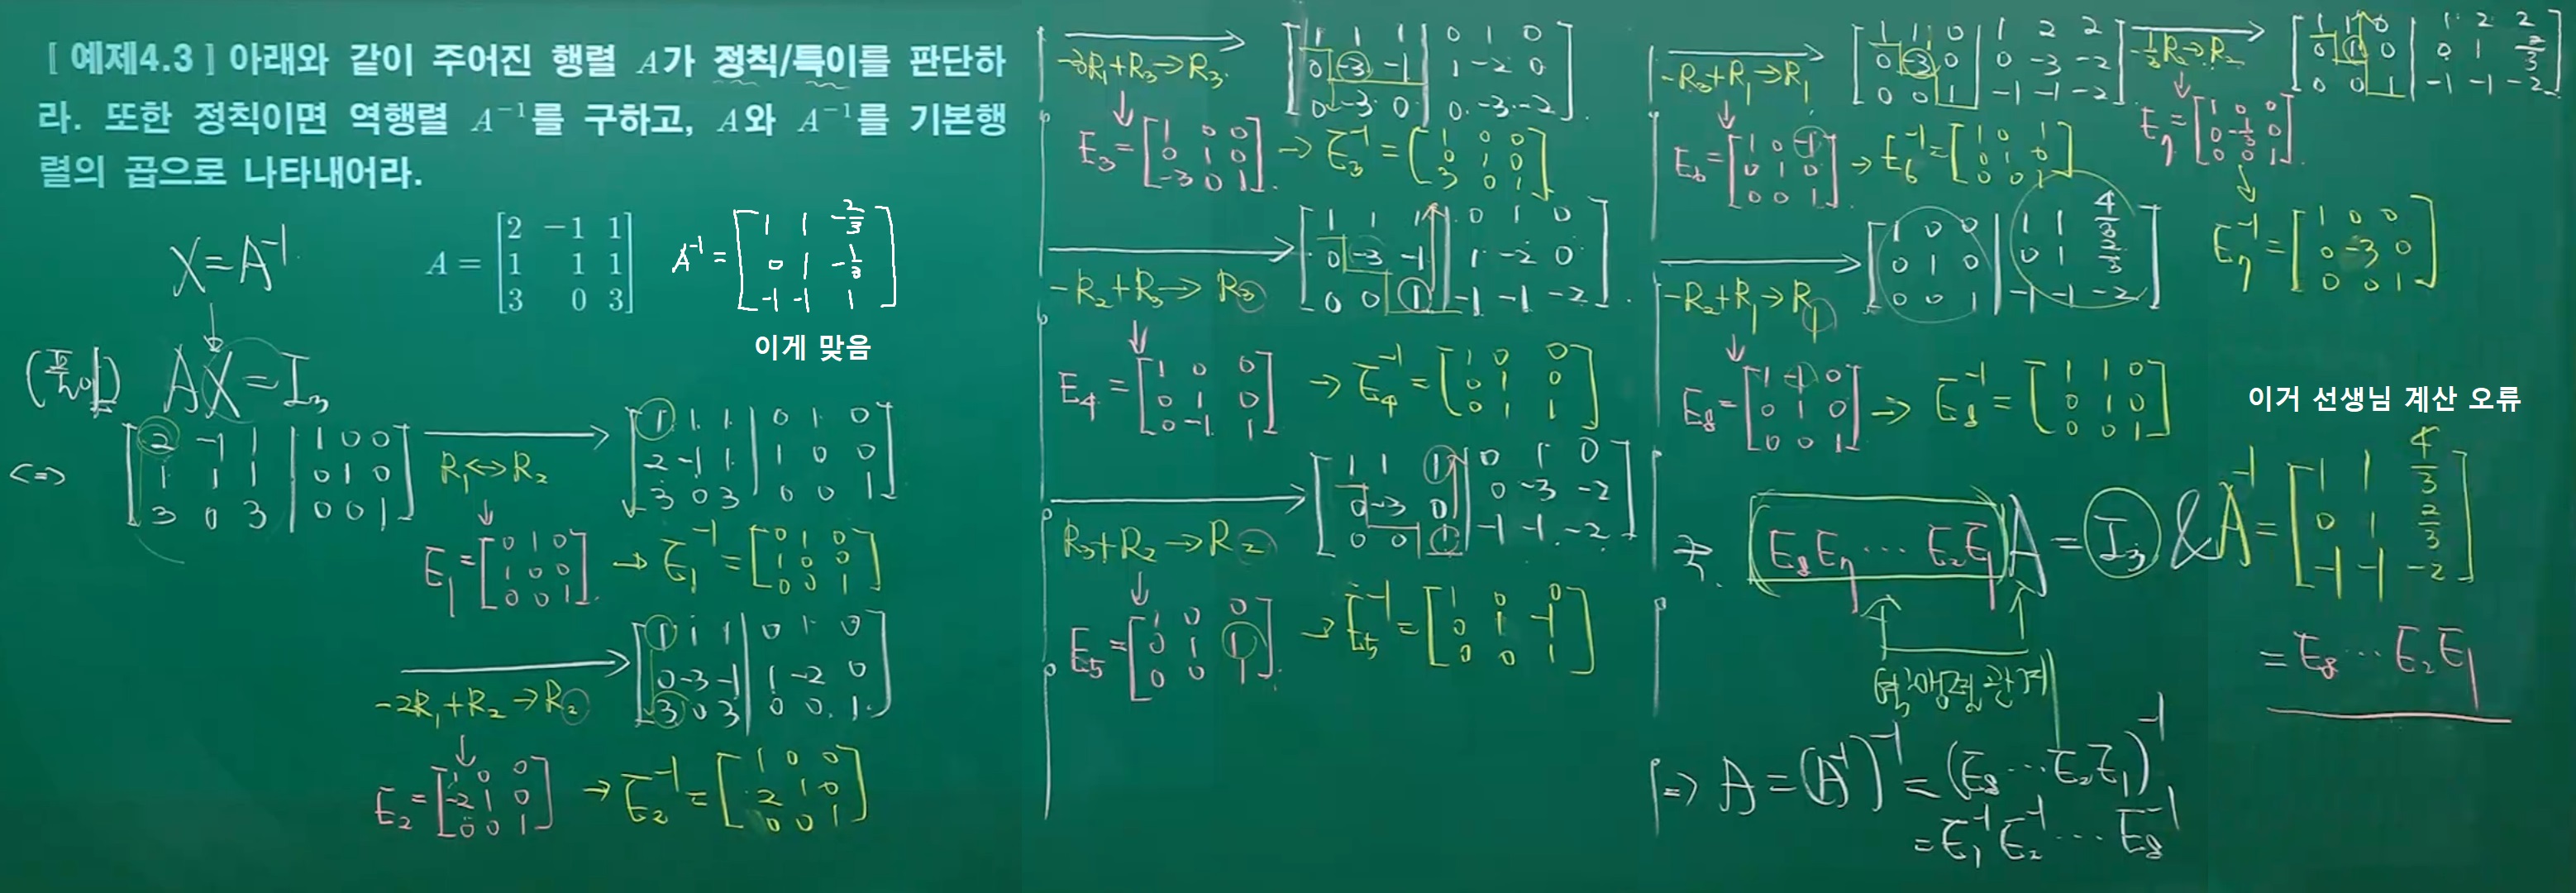 [ 예제4.3 ] 아래와 같이 주어진 행렬 A가 정칙/특이를 판단하
라. 또한 정칙이면 역행렬 A⁻¹를 구하고, A와 A⁻¹를 기본행
렬의 곱으로 나타내어라.
X = A⁻¹
A = [2 -1 1
1 1 1
3 0 3]
A⁻¹ = [1 1 -2/3
0 1 -1/3
-1 -1 1]
이게 맞음
(풀이) AX = I₃
<=> [2 -1 1 | 1 0 0
1 1 1 | 0 1 0
3 0 3 | 0 0 1]
R₁ <-> R₂
[1 1 1 | 0 1 0
2 -1 1 | 1 0 0
3 0 3 | 0 0 1]
E₁ = [0 1 0
1 0 0
0 0 1]
→ E₁⁻¹ = [0 1 0
1 0 0
0 0 1]
-2R₁+R₂ → R₂
[1 1 1 | 0 1 0
0 -3 -1 | 1 -2 0
3 0 3 | 0 0 1]
E₂ = [1 0 0
-2 1 0
0 0 1]
→ E₂⁻¹ = [1 0 0
2 1 0
0 0 1]
-3R₁+R₃ → R₃
[1 1 1 | 0 1 0
0 -3 -1 | 1 -2 0
0 -3 0 | 0 -3 -2]
E₃ = [1 0 0
0 1 0
-3 0 1]
→ E₃⁻¹ = [1 0 0
0 1 0
3 0 1]
-R₂+R₃ → R₃
[1 1 1 | 0 1 0
0 -3 -1 | 1 -2 0
0 0 1 | -1 -1 -2]
E₄ = [1 0 0
0 1 0
0 -1 1]
→ E₄⁻¹ = [1 0 0
0 1 0
0 1 1]
R₃+R₂ → R₂
[1 1 1 | 0 1 0
0 -3 0 | 0 -3 -2
0 0 1 | -1 -1 -2]
E₅ = [1 0 0
0 1 1
0 0 1]
→ E₅⁻¹ = [1 0 0
0 1 -1
0 0 1]
-R₃+R₁ → R₁
[1 1 0 | 1 2 2
0 -3 0 | 0 -3 -2
0 0 1 | -1 -1 -2]
E₆ = [1 0 -1
0 1 0
0 0 1]
→ E₆⁻¹ = [1 0 1
0 1 0
0 0 1]
-1/3R₂ → R₂
[1 1 0 | 1 2 2
0 1 0 | 0 1 2/3
0 0 1 | -1 -1 -2]
E₇ = [1 0 0
0 -1/3 0
0 0 1]
→ E₇⁻¹ = [1 0 0
0 -3 0
0 0 1]
-R₂+R₁ → R₁
[1 0 0 | 1 1 4/3
0 1 0 | 0 1 2/3
0 0 1 | -1 -1 -2]
E₈ = [1 -1 0
0 1 0
0 0 1]
→ E₈⁻¹ = [1 1 0
0 1 0
0 0 1]
이거 선생님 계산 오류
즉. E₈E₇ ⋯ E₂E₁ A = I₃ & A⁻¹ = [1 1 4/3
0 1 2/3
-1 -1 -2]
= E₈ ⋯ E₂E₁
역행렬관계
=> A = (A⁻¹)⁻¹ = (E₈ ⋯ E₂E₁)⁻¹
= E₁⁻¹E₂⁻¹ ⋯ E₈⁻¹